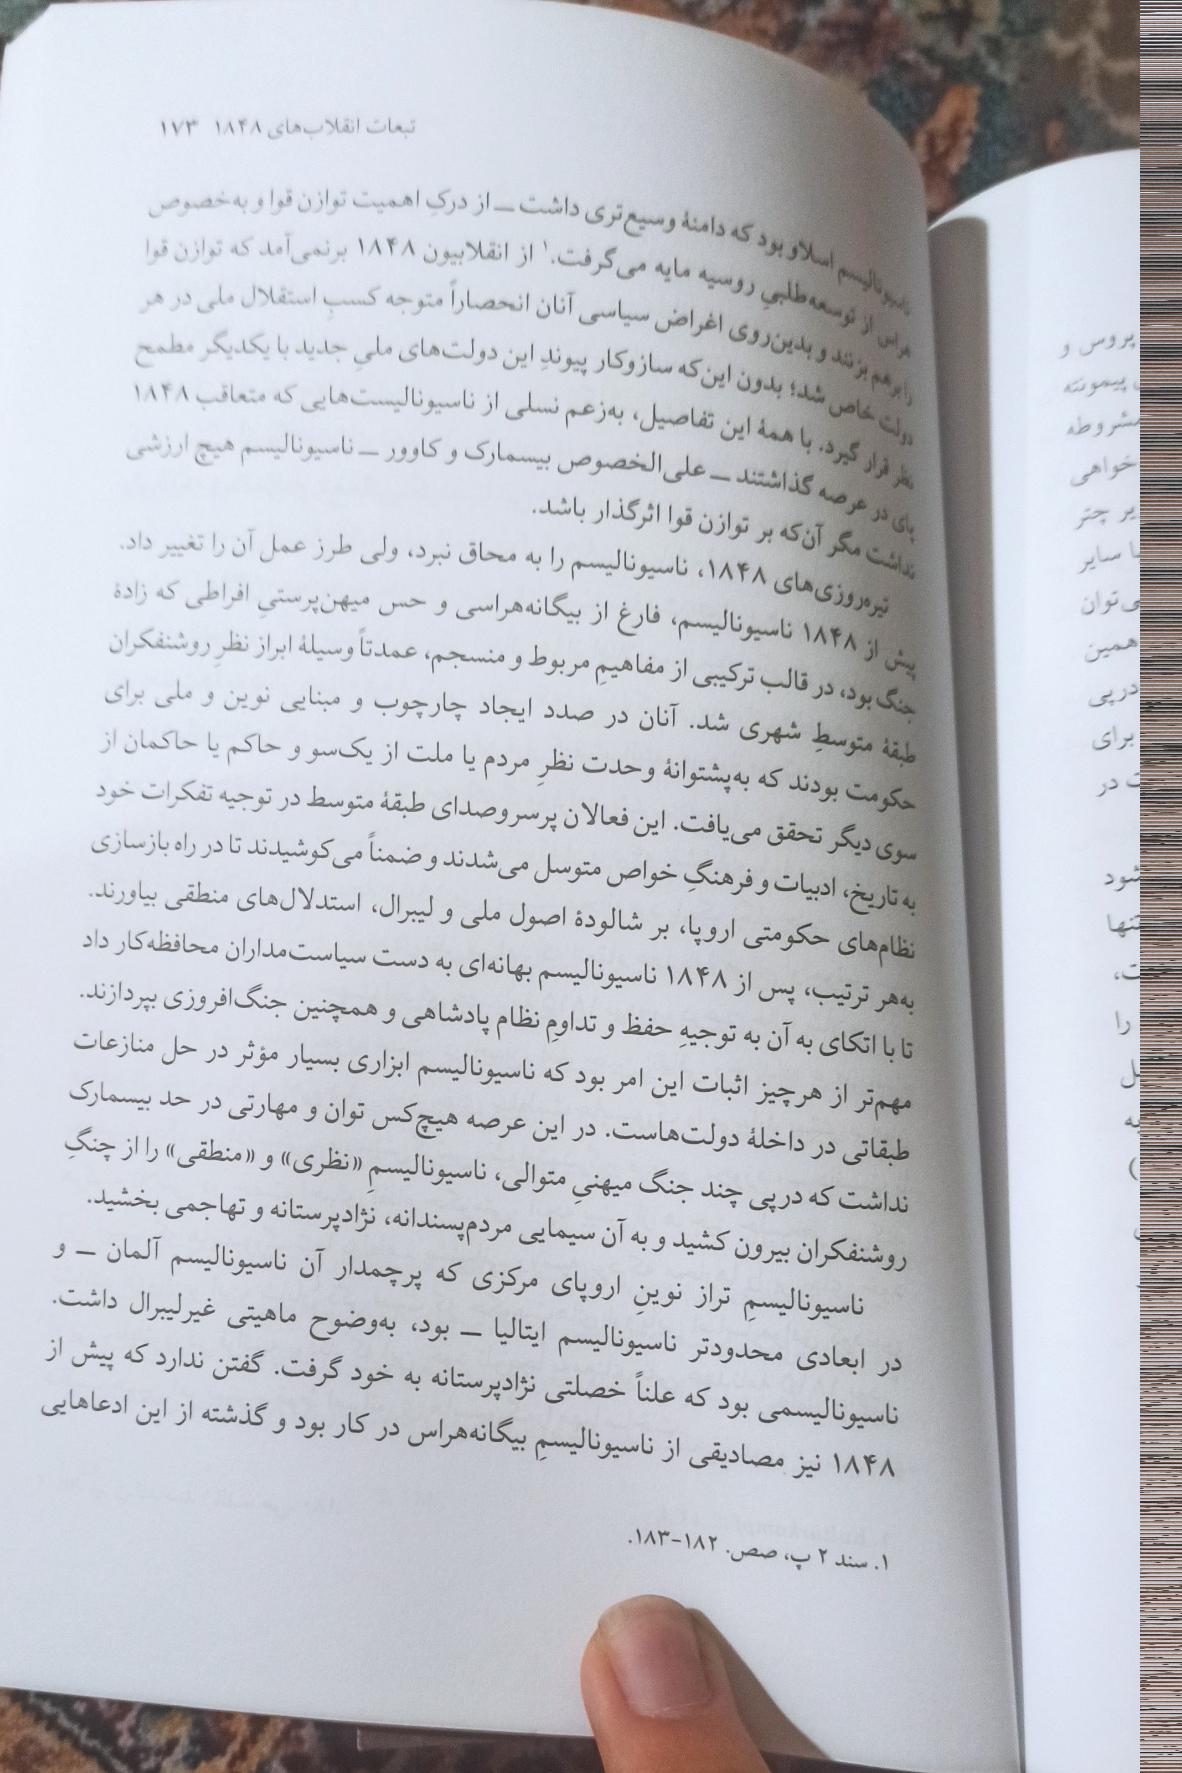 تبعات انقلاب‌های ۱۸۴۸ ۱۷۳
ناسیونالیسم اسلاو بود که دامنهٔ وسیع‌تری داشت ـ از درکِ اهمیت توازن قوا و به‌خصوص
هراس از توسعه‌طلبیِ روسیه مایه می‌گرفت.۱ از انقلابیون ۱۸۴۸ برنمی‌آمد که توازن قوا
را برهم بزنند و بدین‌روی اغراض سیاسی آنان انحصاراً متوجه کسبِ استقلال ملی در هر
دولت خاص شد؛ بدون این‌که سازوکار پیوندِ این دولت‌های ملیِ جدید با یکدیگر مطمح
نظر قرار گیرد. با همهٔ این تفاصیل، به‌زعم نسلی از ناسیونالیست‌هایی که متعاقب ۱۸۴۸
پای در عرصه گذاشتند ـ علی‌الخصوص بیسمارک و کاوور ـ ناسیونالیسم هیچ ارزشی
نداشت مگر آن‌که بر توازن قوا اثرگذار باشد.
تیره‌روزی‌های ۱۸۴۸، ناسیونالیسم را به محاق نبرد، ولی طرز عمل آن را تغییر داد.
پیش از ۱۸۴۸ ناسیونالیسم، فارغ از بیگانه‌هراسی و حس میهن‌پرستیِ افراطی که زادهٔ
جنگ بود، در قالب ترکیبی از مفاهیمِ مربوط و منسجم، عمدتاً وسیلهٔ ابراز نظرِ روشنفکران
طبقهٔ متوسطِ شهری شد. آنان در صدد ایجاد چارچوب و مبنایی نوین و ملی برای
حکومت بودند که به‌پشتوانهٔ وحدت نظرِ مردم یا ملت از یک‌سو و حاکم یا حاکمان از
سوی دیگر تحقق می‌یافت. این فعالان پرسروصدای طبقهٔ متوسط در توجیه تفکرات خود
به تاریخ، ادبیات و فرهنگِ خواص متوسل می‌شدند و ضمناً می‌کوشیدند تا در راه بازسازی
نظام‌های حکومتی اروپا، بر شالودهٔ اصول ملی و لیبرال، استدلال‌های منطقی بیاورند.
به‌هر ترتیب، پس از ۱۸۴۸ ناسیونالیسم بهانه‌ای به دست سیاست‌مداران محافظه‌کار داد
تا با اتکای به آن به توجیهِ حفظ و تداومِ نظام پادشاهی و همچنین جنگ‌افروزی بپردازند.
مهم‌تر از هرچیز اثبات این امر بود که ناسیونالیسم ابزاری بسیار مؤثر در حل منازعات
طبقاتی در داخلهٔ دولت‌هاست. در این عرصه هیچ‌کس توان و مهارتی در حد بیسمارک
نداشت که درپی چند جنگ میهنیِ متوالی، ناسیونالیسمِ «نظری» و «منطقی» را از چنگِ
روشنفکران بیرون کشید و به آن سیمایی مردم‌پسندانه، نژادپرستانه و تهاجمی بخشید.
ناسیونالیسمِ تراز نوینِ اروپای مرکزی که پرچمدار آن ناسیونالیسم آلمان ـ و
در ابعادی محدودتر ناسیونالیسم ایتالیا ـ بود، به‌وضوح ماهیتی غیرلیبرال داشت.
ناسیونالیسمی بود که علناً خصلتی نژادپرستانه به خود گرفت. گفتن ندارد که پیش از
۱۸۴۸ نیز مصادیقی از ناسیونالیسمِ بیگانه‌هراس در کار بود و گذشته از این ادعاهایی
۱. سند ۲ پ، صص. ۱۸۲-۱۸۳.
پروس و
پیمونته
مشروطه
خواهی
چتر
سایر
می‌توان
همین
درپی
برای
در
شود
تنها
را